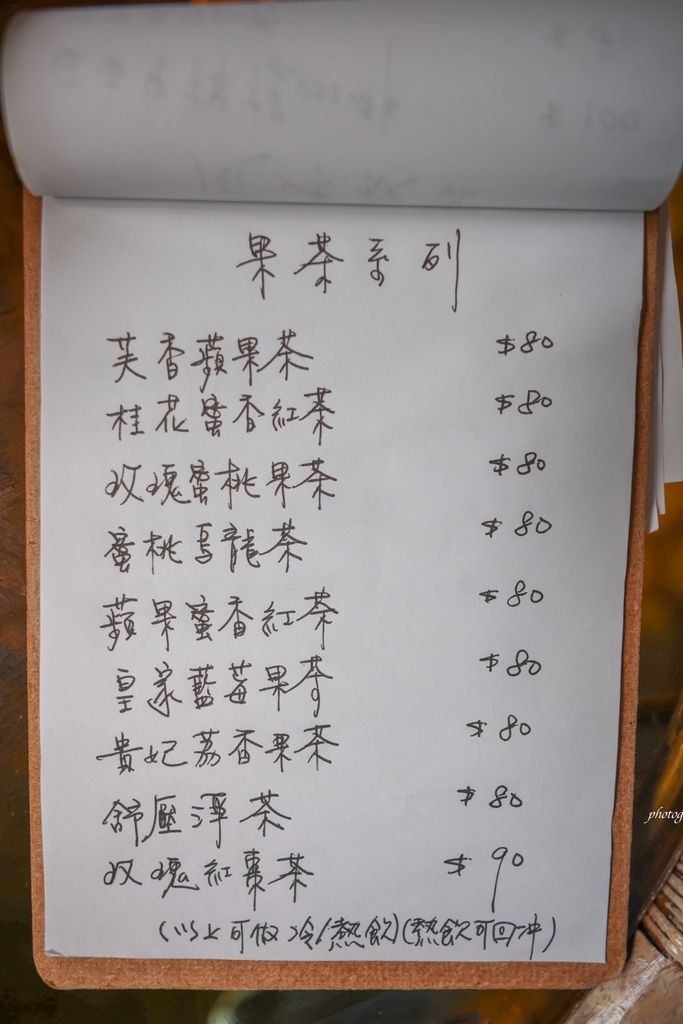 果茶系列
芙香蘋果茶 $80
桂花蜜香紅茶 $80
玫瑰蜜桃果茶 $80
蜜桃烏龍茶 $80
蘋果蜜香紅茶 $80
皇家藍莓果茶 $80
貴妃荔香果茶 $80
舒壓淨茶 $80
玫瑰紅棗茶 $90
(以上可做冷/熱飲)(熱飲可回沖)
photog